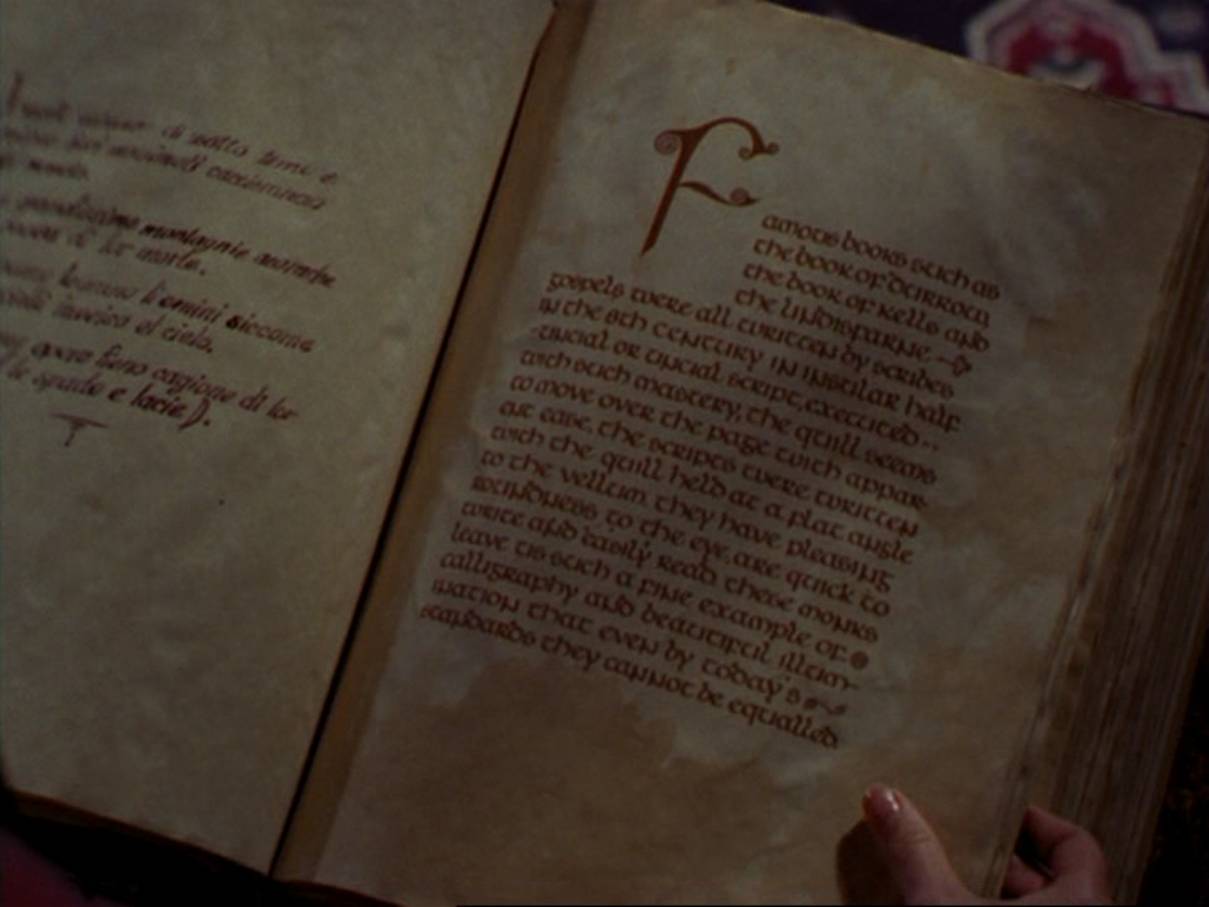 di sotto terra e
montagnie ancorche
di lor morte.
li omini siccome
el cielo.
fieno cagione di lor
le spade e lacie).
Famous books such as
the book of Durrow,
the book of Kells and
the Lindisfarne
gospels were all written by scribes
in the 8th century in insular half
-uncial or uncial script, executed..
with such mastery, the quill seems
to move over the page with appar-
ent ease, the scripts were written
with the quill held at a flat angle
to the vellum they have pleasing
roundness to the eye, are quick to
write and easily read these monks
leave us such a fine example of
calligraphy and beautiful illum-
ination that even by today's
standards they cannot be equalled.